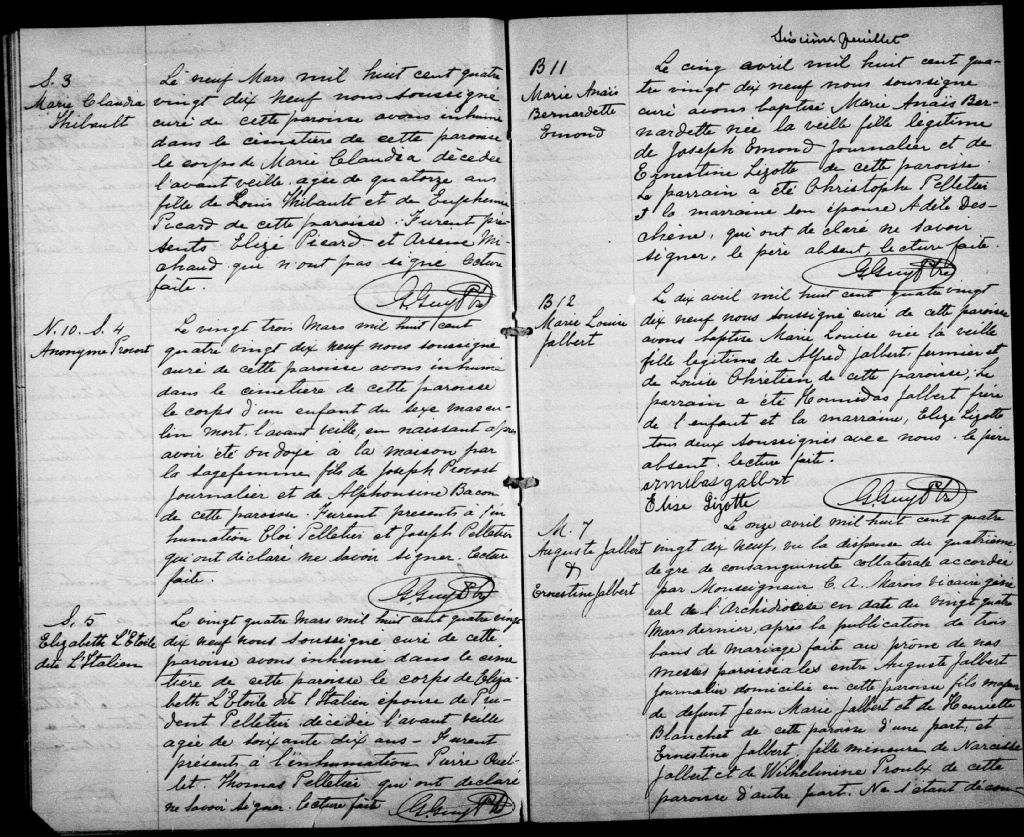 S. 3
Marie Claudia
Thibault
Le neuf Mars mil huit cent quatre
vingt dix neuf nous soussigné
curé de cette paroisse avons inhumé
dans le cimetière de cette paroisse
le corps de Marie Claudia décédée
l'avant veille, agée de quatorze ans
fille de Louis Thibault et de Euphémie
Picard de cette paroisse. Furent pré-
sents Elizé Picard et Arsene Mi-
chaud qui n'ont pas signé lecture
faite.
G. Guy Ptre
N. 10. S. 4
Anonyme Provost
Le vingt trois Mars mil huit cent
quatre vingt dix neuf nous soussigné
curé de cette paroisse avons inhumé
dans le cimetière de cette paroisse
le corps d'un enfant du sexe mascu-
lin mort, l'avant veille, en naissant après
avoir été ondoyé à la maison par
la sagefemme, fils de Joseph Provost
journalier et de Alphonsine Bacon
de cette paroisse. Furent presents à l'in
humation Eloi Pelletier et Joseph Pelletier
qui ont déclaré ne savoir signer. lecture
faite.
G. Guy Ptre
S. 5
Elizabeth L'Etoile
dite L'Italien
Le vingt quatre Mars mil huit cent quatre vingt
dix neuf nous soussigné curé de cette
paroisse avons inhumé dans le cime
tière de cette paroisse le corps de Eliza-
beth L'Etoile dite l'Italien épouse de Pru-
dent Pelletier décédée l'avant veille
agée de soixante dix ans - Furent
présents à l'inhumation Pierre Ouel-
let. Thomas Pelletier qui ont declaré
ne savoir signer. lecture faite
G. Guy Ptre
Sixième feuillet
B 11
Marie Anaïs
Bernardette
Emond
Le cinq avril mil huit cent qua-
tre vingt dix neuf nous soussigné
curé avons baptisé Marie Anaïs Ber-
nardette née la veille fille legitime
de Joseph Emond journalier et de
Ernestine Lizotte de cette paroisse.
Le parrain a été Christophe Pelletier
et la marraine son épouse Adèle Des-
chêne, qui ont de claré ne savoir
signer, le père absent, lecture faite.
G. Guy Ptre
B 12
Marie Louise
Jalbert
Le dix avril mil huit cent quatre vingt
dix neuf nous soussigné curé de cette paroisse
avons baptisé Marie Louise née la veille
fille legitime de Alfred Jalbert, fermier et
de Louise Chrétien de cette paroisse; Le
parrain a été Hormidas Jalbert frère
de l'enfant et la marraine, Elize Lizotte
tous deux soussignés avec nous. le père
absent. lecture faite.
ormibas galbert
Elise Lizotte
G. Guy Ptre
M. 7
Auguste Jalbert
&
Ernestine Jalbert
Le onze avril mil huit cent quatre
vingt dix neuf, vu la dispense du quatrième
de gré de consanguinité collatérale accordée
par Monseigneur C. A. Marois vicaire géné
ral de l'Archidiocèse en date du vingt quatre
Mars dernier, après la publication de trois
bans de mariage faite au prône de nos
messes paroissiales entre Auguste Jalbert
journalier domicilié en cette paroisse fils majeur
de defunt Jean Marie Jalbert et de Henriette
Blanchet de cette paroisse d'une part, et
Ernestine Jalbert, fille mineure de Narcisse
Jalbert et de Wilhelmine Proulx de cette
paroisse d'autre part. Ne s'étant décou-